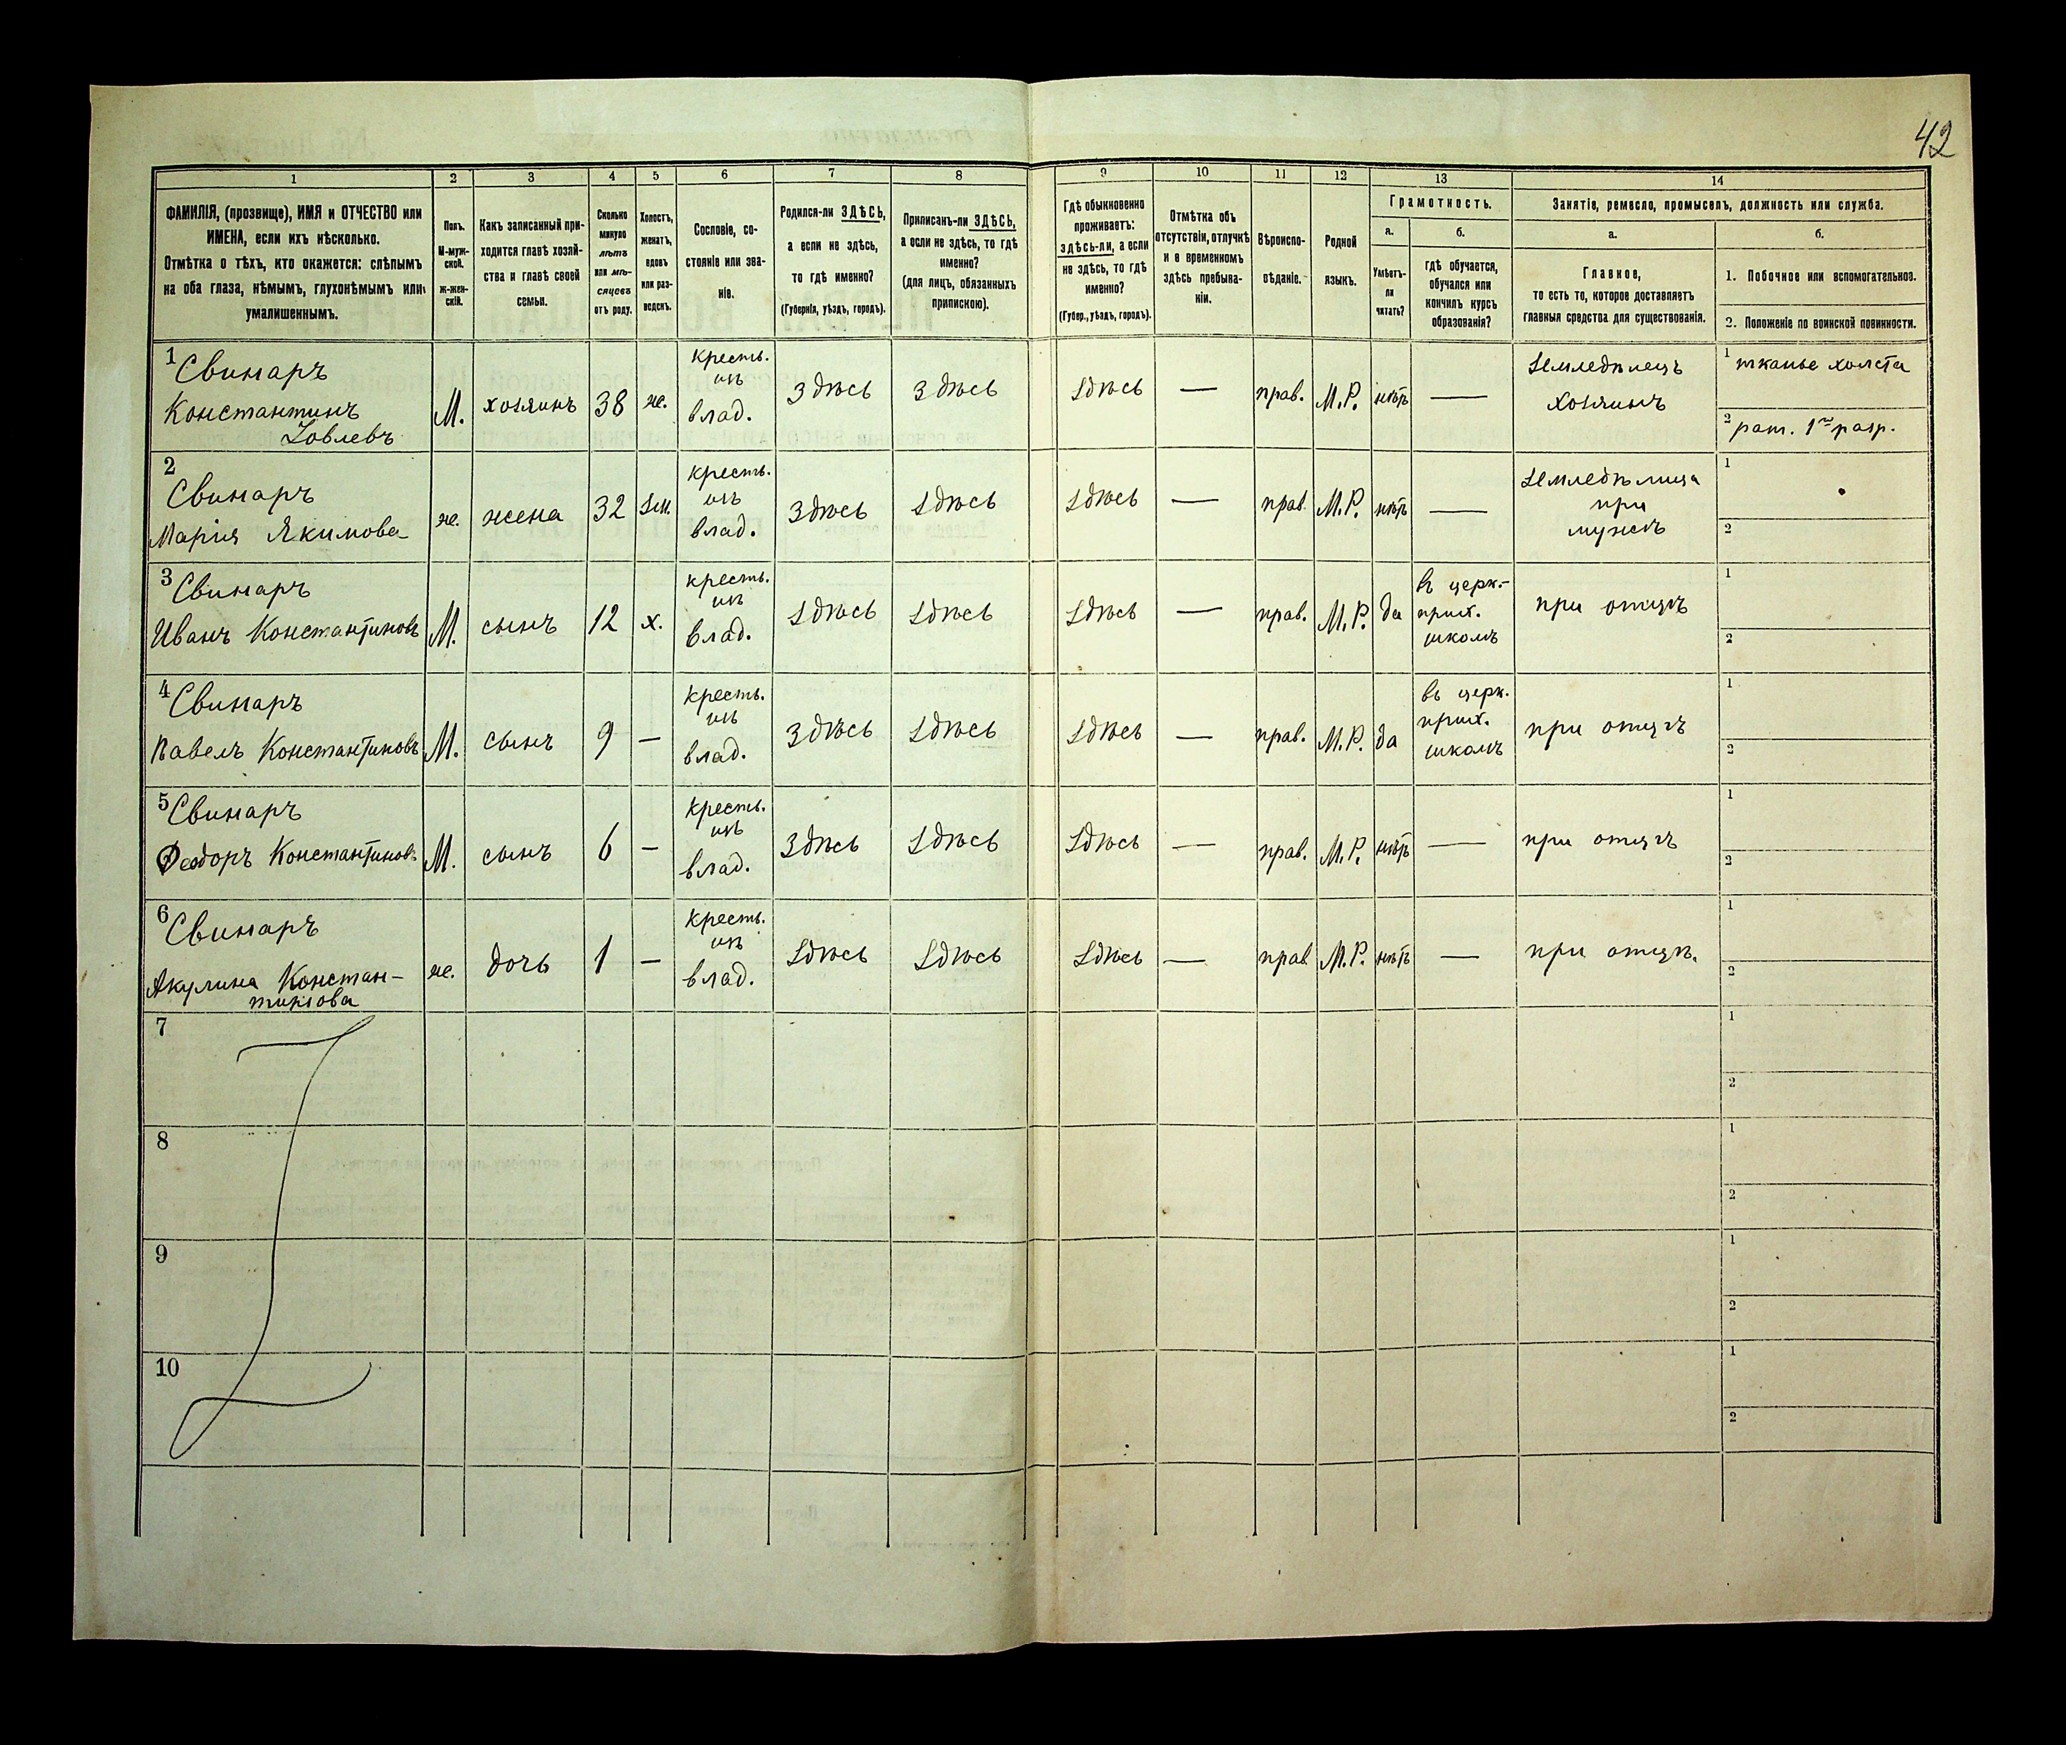 42
1 2 3 4 5 6 7 8 9 10 11 12 13 14
ФАМИЛІЯ, (прозвище), ИМЯ и ОТЧЕСТВО или
ИМЕНА, если ихъ нѣсколько.
Отмѣтка о тѣхъ, кто окажется: слѣпымъ
на оба глаза, нѣмымъ, глухонѣмымъ или
умалишеннымъ.
Полъ.
М-муж-
ской.
ж-жен-
скій.
Какъ записанный при-
ходится главѣ хозяй-
ства и главѣ своей
семьи.
Сколько
минуло
лѣтъ
или мѣ-
сяцевъ
отъ роду.
Холостъ,
женатъ,
вдовъ
или раз-
веденъ.
Сословіе, со-
стояніе или зва-
ніе.
Родился-ли ЗДѢСЬ,
а если не здѣсь,
то гдѣ именно?
(Губернія, уѣздъ, городъ).
Приписанъ-ли ЗДѢСЬ,
а если не здѣсь, то гдѣ
именно?
(для лицъ, обязанныхъ
припискою).
Гдѣ обыкновенно
проживаетъ:
здѣсь-ли, а если
не здѣсь, то гдѣ
именно?
(Губер., уѣздъ, городъ).
Отмѣтка объ
отсутствіи, отлучкѣ
и о временномъ
здѣсь пребыва-
ніи.
Вѣроиспо-
вѣданіе.
Родной
языкъ.
Грамотность.
а.
Умѣетъ-
ли
читать?
б.
гдѣ обучается,
обучался или
кончилъ курсъ
образованія?
Занятіе, ремесло, промыселъ, должность или служба.
а.
Главное,
то есть то, которое доставляетъ
главныя средства для существованія.
б.
1. Побочное или вспомогательное.
2. Положеніе по воинской повинности.
1
Свинаръ
Константинъ
М.
хозяинъ
38
же.
кресть.
изъ
влад.
здѣсь
здѣсь
здѣсь
—
прав.
М.Р.
нѣтъ
—
Земледѣлецъ
хозяинъ
1 тканье холста
2 рат. 1го разр.
2
Свинаръ
Марія Якимова
же.
жена
32
Зам.
кресть.
изъ
влад.
здѣсь
здѣсь
здѣсь
—
прав.
М.Р.
нѣтъ
—
Земледѣлица
при
мужѣ
1
2
3
Свинаръ
Иванъ Константиновъ
М.
сынъ
12
х.
кресть.
изъ
влад.
здѣсь
здѣсь
здѣсь
—
прав.
М.Р.
да
въ церк.-
прих.
школѣ
при отцѣ
1
2
4
Свинаръ
Павелъ Константиновъ
М.
сынъ
9
—
кресть.
изъ
влад.
здѣсь
здѣсь
здѣсь
—
прав.
М.Р.
да
въ церк.
прих.
школѣ
при отцѣ
1
2
5
Свинаръ
Феодоръ Константиновъ
М.
сынъ
6
—
кресть.
изъ
влад.
здѣсь
здѣсь
здѣсь
—
прав.
М.Р.
нѣтъ
—
при отцѣ
1
2
6
Свинаръ
Акулина Констан-
тинова
же.
дочь
1
—
кресть.
изъ
влад.
здѣсь
здѣсь
здѣсь
—
прав
М.Р.
нѣтъ
—
при отцѣ.
1
2
7
1
2
8
1
2
9
1
2
10
1
2